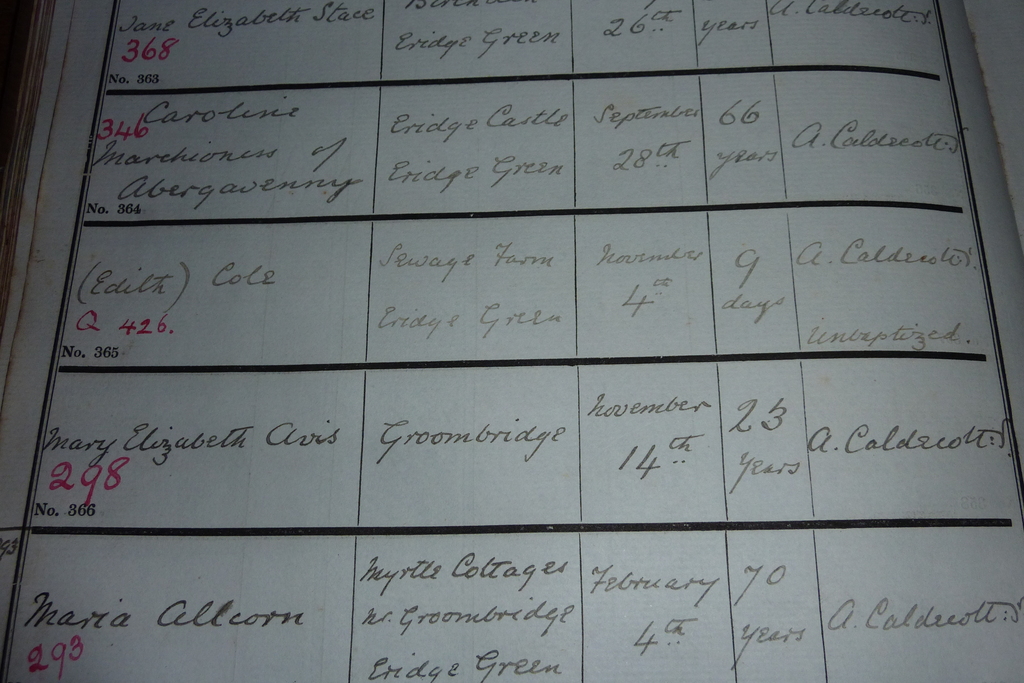 Jane Elizabeth Stace
368
No. 363
Eridge Green
26th
years
A. Caldecott:
346
Caroline
Marchioness of
Abergavenny
No. 364
Eridge Castle
Eridge Green
September
28th
66
years
A. Caldecott:
(Edith) Cole
Q 426.
No. 365
Sewage Farm
Eridge Green
November
4th
9
days
A. Caldecott:
Unbaptized.
Mary Elizabeth Avis
298
No. 366
Groombridge
November
14th
23
Years
A. Caldecott:
93
Maria Allcorn
293
Myrtle Cottages
nr. Groombridge
Eridge Green
February
4th
70
Years
A. Caldecott: